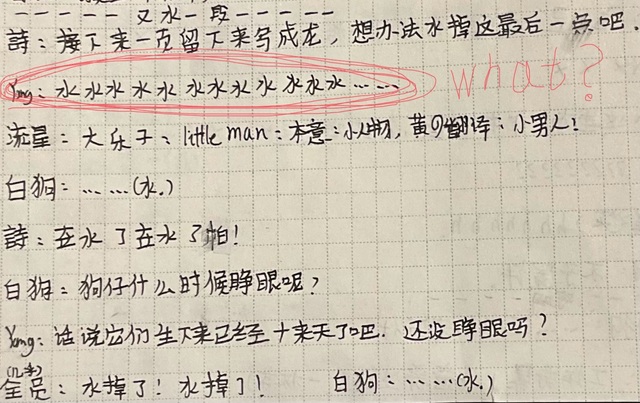 －－－－－又水一段－－－－－
詩：接下来一页留下来写成龙，想办法水掉这最后一点吧．
Yong：水水水水水水水水水水水水……
what?
流星：大乐子、little man：本意：小人物，黄の翻译：小男人！
白狗：……(水.)
詩：在水了在水了
白狗：狗仔什么时候睁眼呢？
Yong：话说它们生下来已经十来天了吧．还没睁眼吗？
全员：水掉了！水掉了！ 白狗：……(水.)